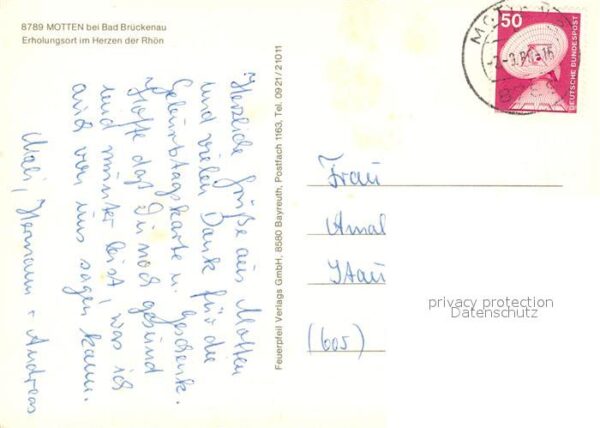 8789 MOTTEN bei Bad Brückenau
Erholungsort im Herzen der Rhön
Herzliche Grüße aus Motten
und vielen Dank für die
Geburtstagskarte u. Geschenk.
Hoffe daß Du noch gesund
und munter bist, was ich
auch von uns sagen kann.
Mali, Hermann + Andreas
Feuerpfeil Verlags GmbH, 8580 Bayreuth, Postfach 1163, Tel. 0921/21011
MOTTEN
50
DEUTSCHE BUNDESPOST
Frau
Amal
(605)
privacy protection
Datenschutz